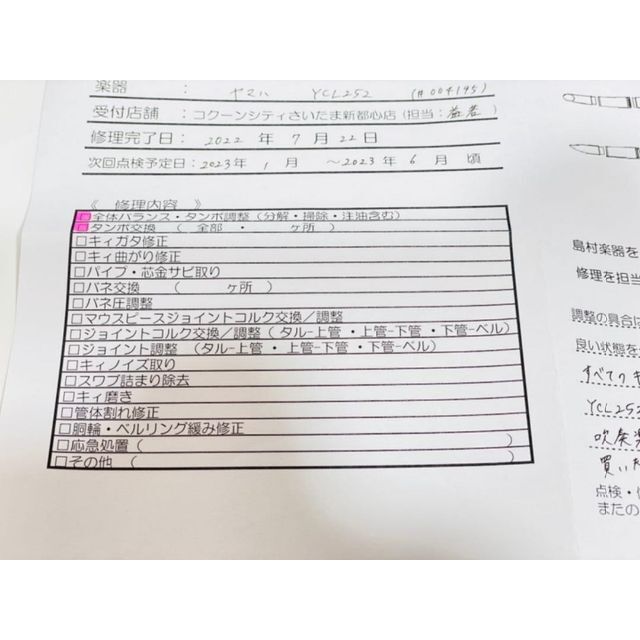 楽器 : ヤマハ YCL252 (# 004195)
受付店舗 : コクーンシティさいたま新都心店 (担当:
修理完了日: 2022 年 7 月 22日
次回点検予定日: 2023年 1 月 ～2023年 6 月 頃
《 修理内容 》
□全体バランス・タンポ調整(分解・掃除・注油含む)
□タンポ交換 ( 全部 ・ ヶ所 )
□キィガタ修正
□キィ曲がり修正
□パイプ・芯金サビ取り
□バネ交換 ( ヶ所 )
□バネ圧調整
□マウスピースジョイントコルク交換/調整
□ジョイントコルク交換/調整 ( タル-上管 ・上管-下管 ・下管-ベル)
□ジョイント調整 (タル-上管 ・ 上管-下管 ・下管-ベル)
□キィノイズ取り
□スワブ詰まり除去
□キィ磨き
□管体割れ修正
□胴輪・ベルリング緩み修正
□応急処置 ( )
□その他 ( )
島村楽器を
修理を担当
調整の具合に
良い状態を
すべてのキ
YCL252
吹奏楽
買い
点検・
またの